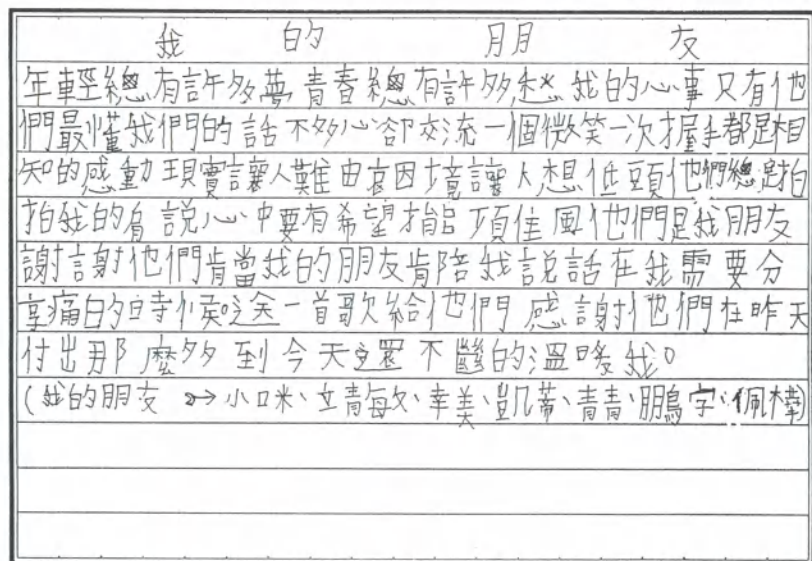 我的朋友
年輕總有許多夢青春總有許多愁我的心事只有他
們最懂我們的話不多心卻交流一個微笑一次握手都是相
知的感動現實讓人難由衷因境讓人想低頭他們總是拍
拍我的肩說心中要有希望才能頂住風他們是我朋友
謝謝他們肯當我的朋友肯陪我說話在我需要分
享痛的時候送一首歌給他們感謝他們在昨天
付出那麼多到今天還不斷的溫暖我。
(我的朋友→小口米、立青敏、幸美、凱蒂、青青、鵬字、佩樺)